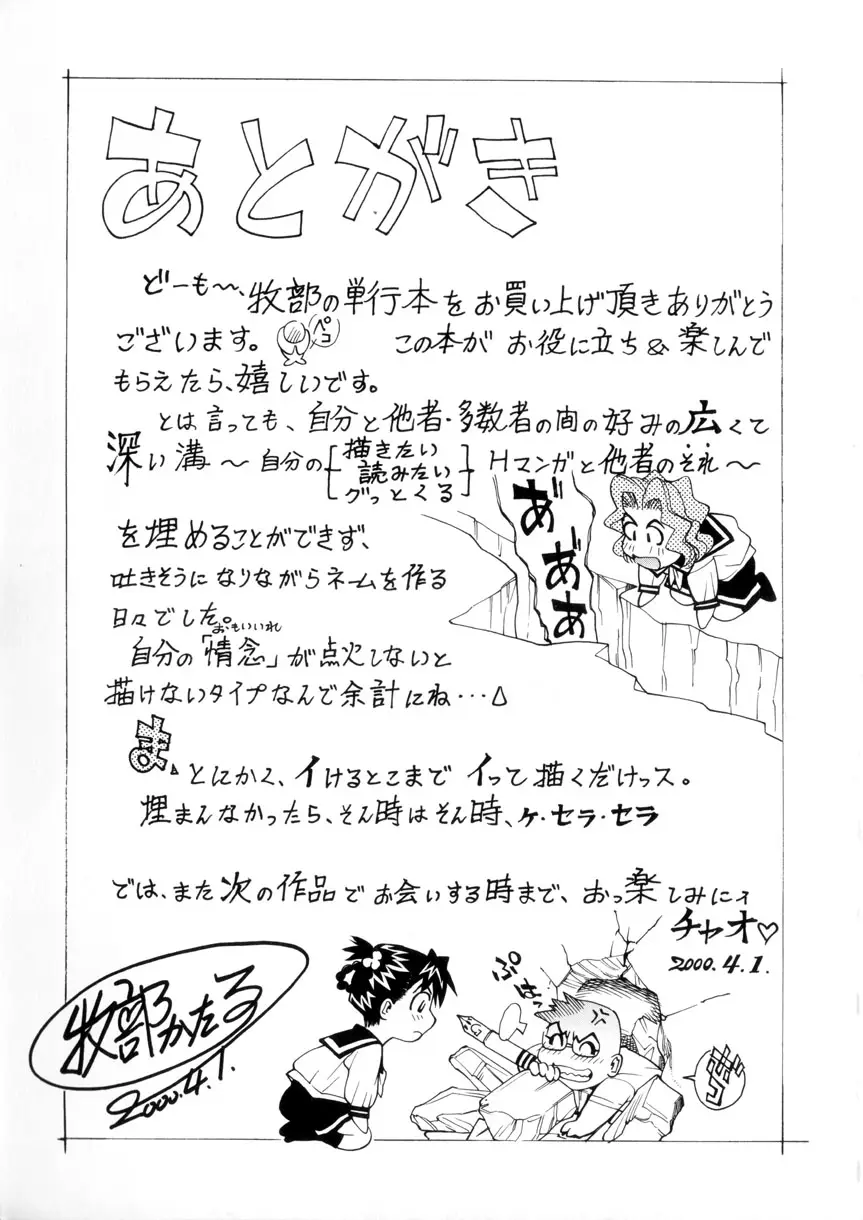 あとがき
どーも〜、牧部の単行本をお買い上げ頂きありがとう
ございます。ペコ この本が お役に立ち&楽しんで
もらえたら、嬉しいです。
とは言っても、自分と他者・多数者の間の好みの広くて
深い溝〜自分の[描きたい
読みたい
グっとくる]Hマンガと他者のそれ〜
を埋めることができず、
吐きそうになりながらネームを作る
日々でした。
おもいいれ
自分の「情念」が点火しないと
描けないタイプなんで余計にね…
ま、とにかく、イけるとこまで イって描くだけっス。
埋まんなかったら、そん時はそん時、ケ・セラ・セラ
では、また次の作品でお会いする時まで、おっ楽しみにィ
チャオ♡
2000.4.1.
あ゛あ゛あ゛
ぷはー
牧部かたる
2000.4.1.